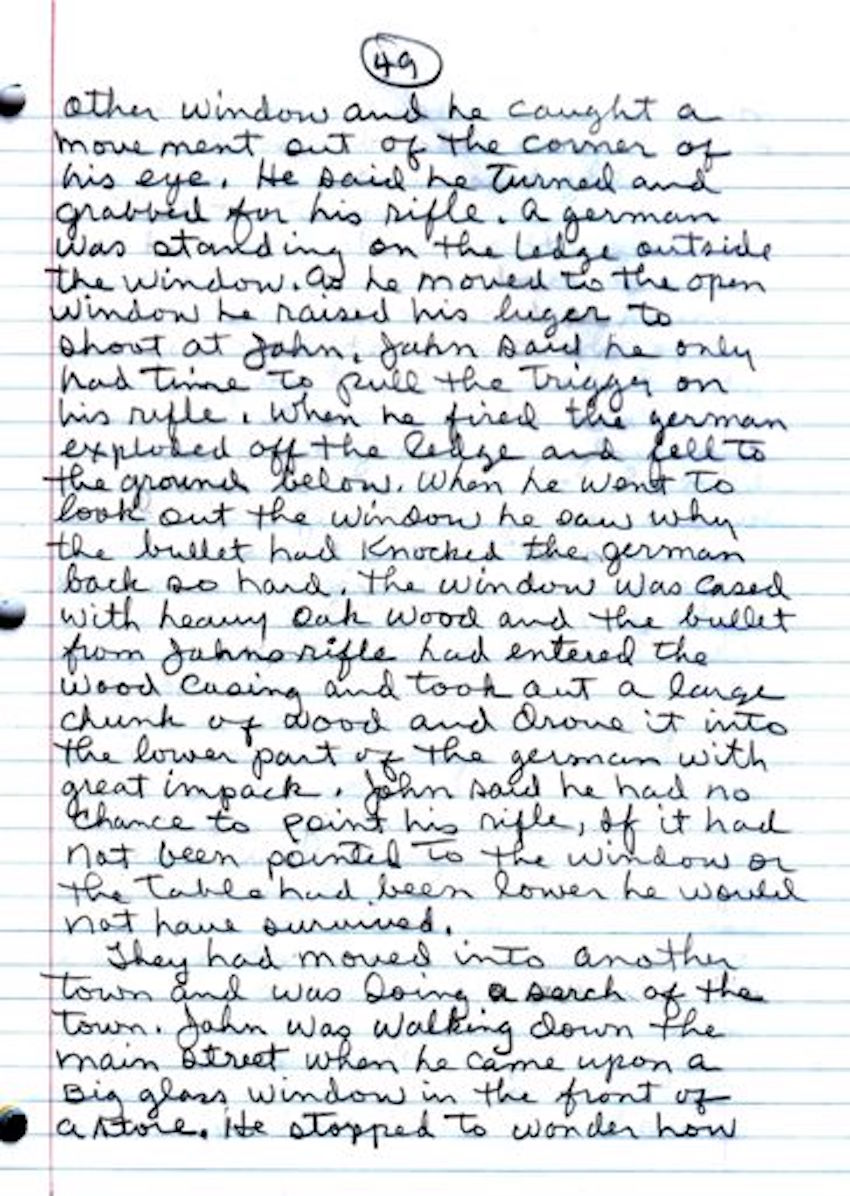 49
other window and he caught a
movement out of the corner of
his eye. He said he turned and
grabbed for his rifle. A german
was standing on the ledge outside
the window. As he moved to the open
window he raised his luger to
shoot at John. John said he only
had time to pull the trigger on
his rifle. When he fired the german
exploded off the ledge and fell to
the ground below. When he went to
look out the window he saw why
the bullet had Knocked the german
back so hard. the window was cased
with heavy oak wood and the bullet
from Johns rifle had entered the
wood casing and took out a large
chunk of wood and drove it into
the lower part of the german with
great impack. John said he had no
chance to point his rifle, If it had
not been pointed to the window or
the table had been lower he would
not have survived.
They had moved into another
town and was doing a serch of the
town. John was walking down the
main street when he came upon a
Big glass window in the front of
a store. He stopped to wonder how